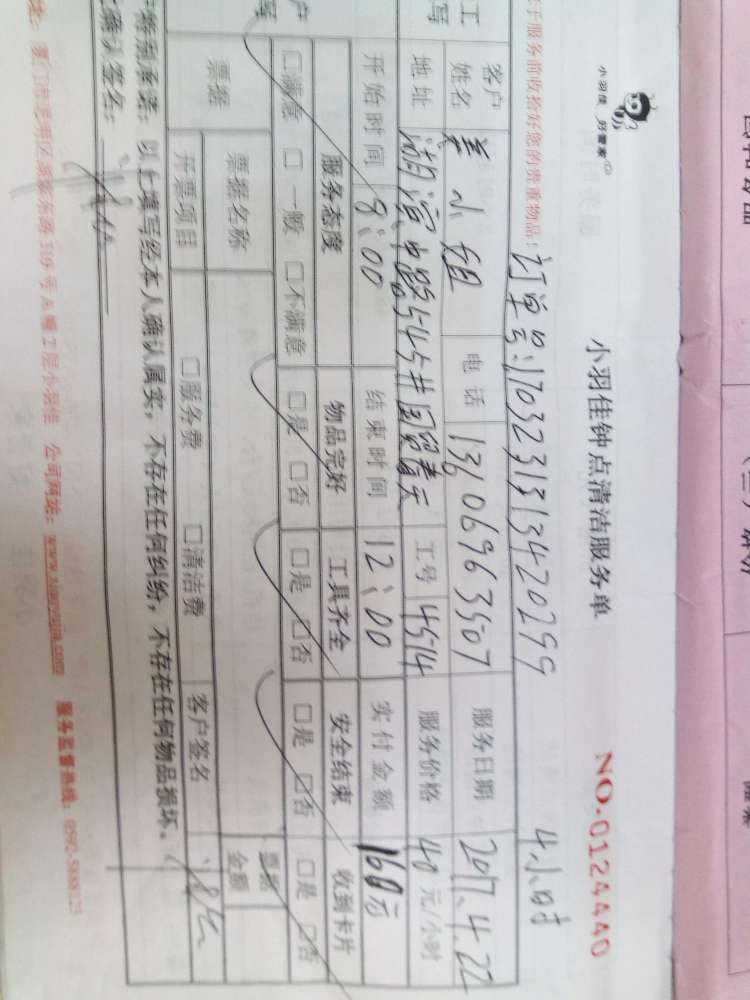 小羽佳 好管家
小羽佳钟点清洁服务单
NO.0124440
于服务前收拾好您的贵重物品!
订单号:1703231313420299
4小时
客户姓名 姜小姐 电话 13606963507 服务日期 2017.4.22
地址 湖滨中路545# 国贸春天 工号 4514 服务价格 40元/小时
开始时间 8:00 结束时间 12:00 实付金额 160元
服务态度 物品完好 工具齐全 安全结束 收到卡片
□满意 □一般 □不满意 □是 □否 □是 □否 □是 □否 □是 □否
票据 票据名称 票据金额
开票项目 □服务费 □清洁费 客户签名
特别承诺: 以上填写经本人确认属实, 不存在任何纠纷, 不存在任何物品损坏。
确认签名:
公司网站: www.xiaoyujia.com 服务监督热线: 0592-5888123